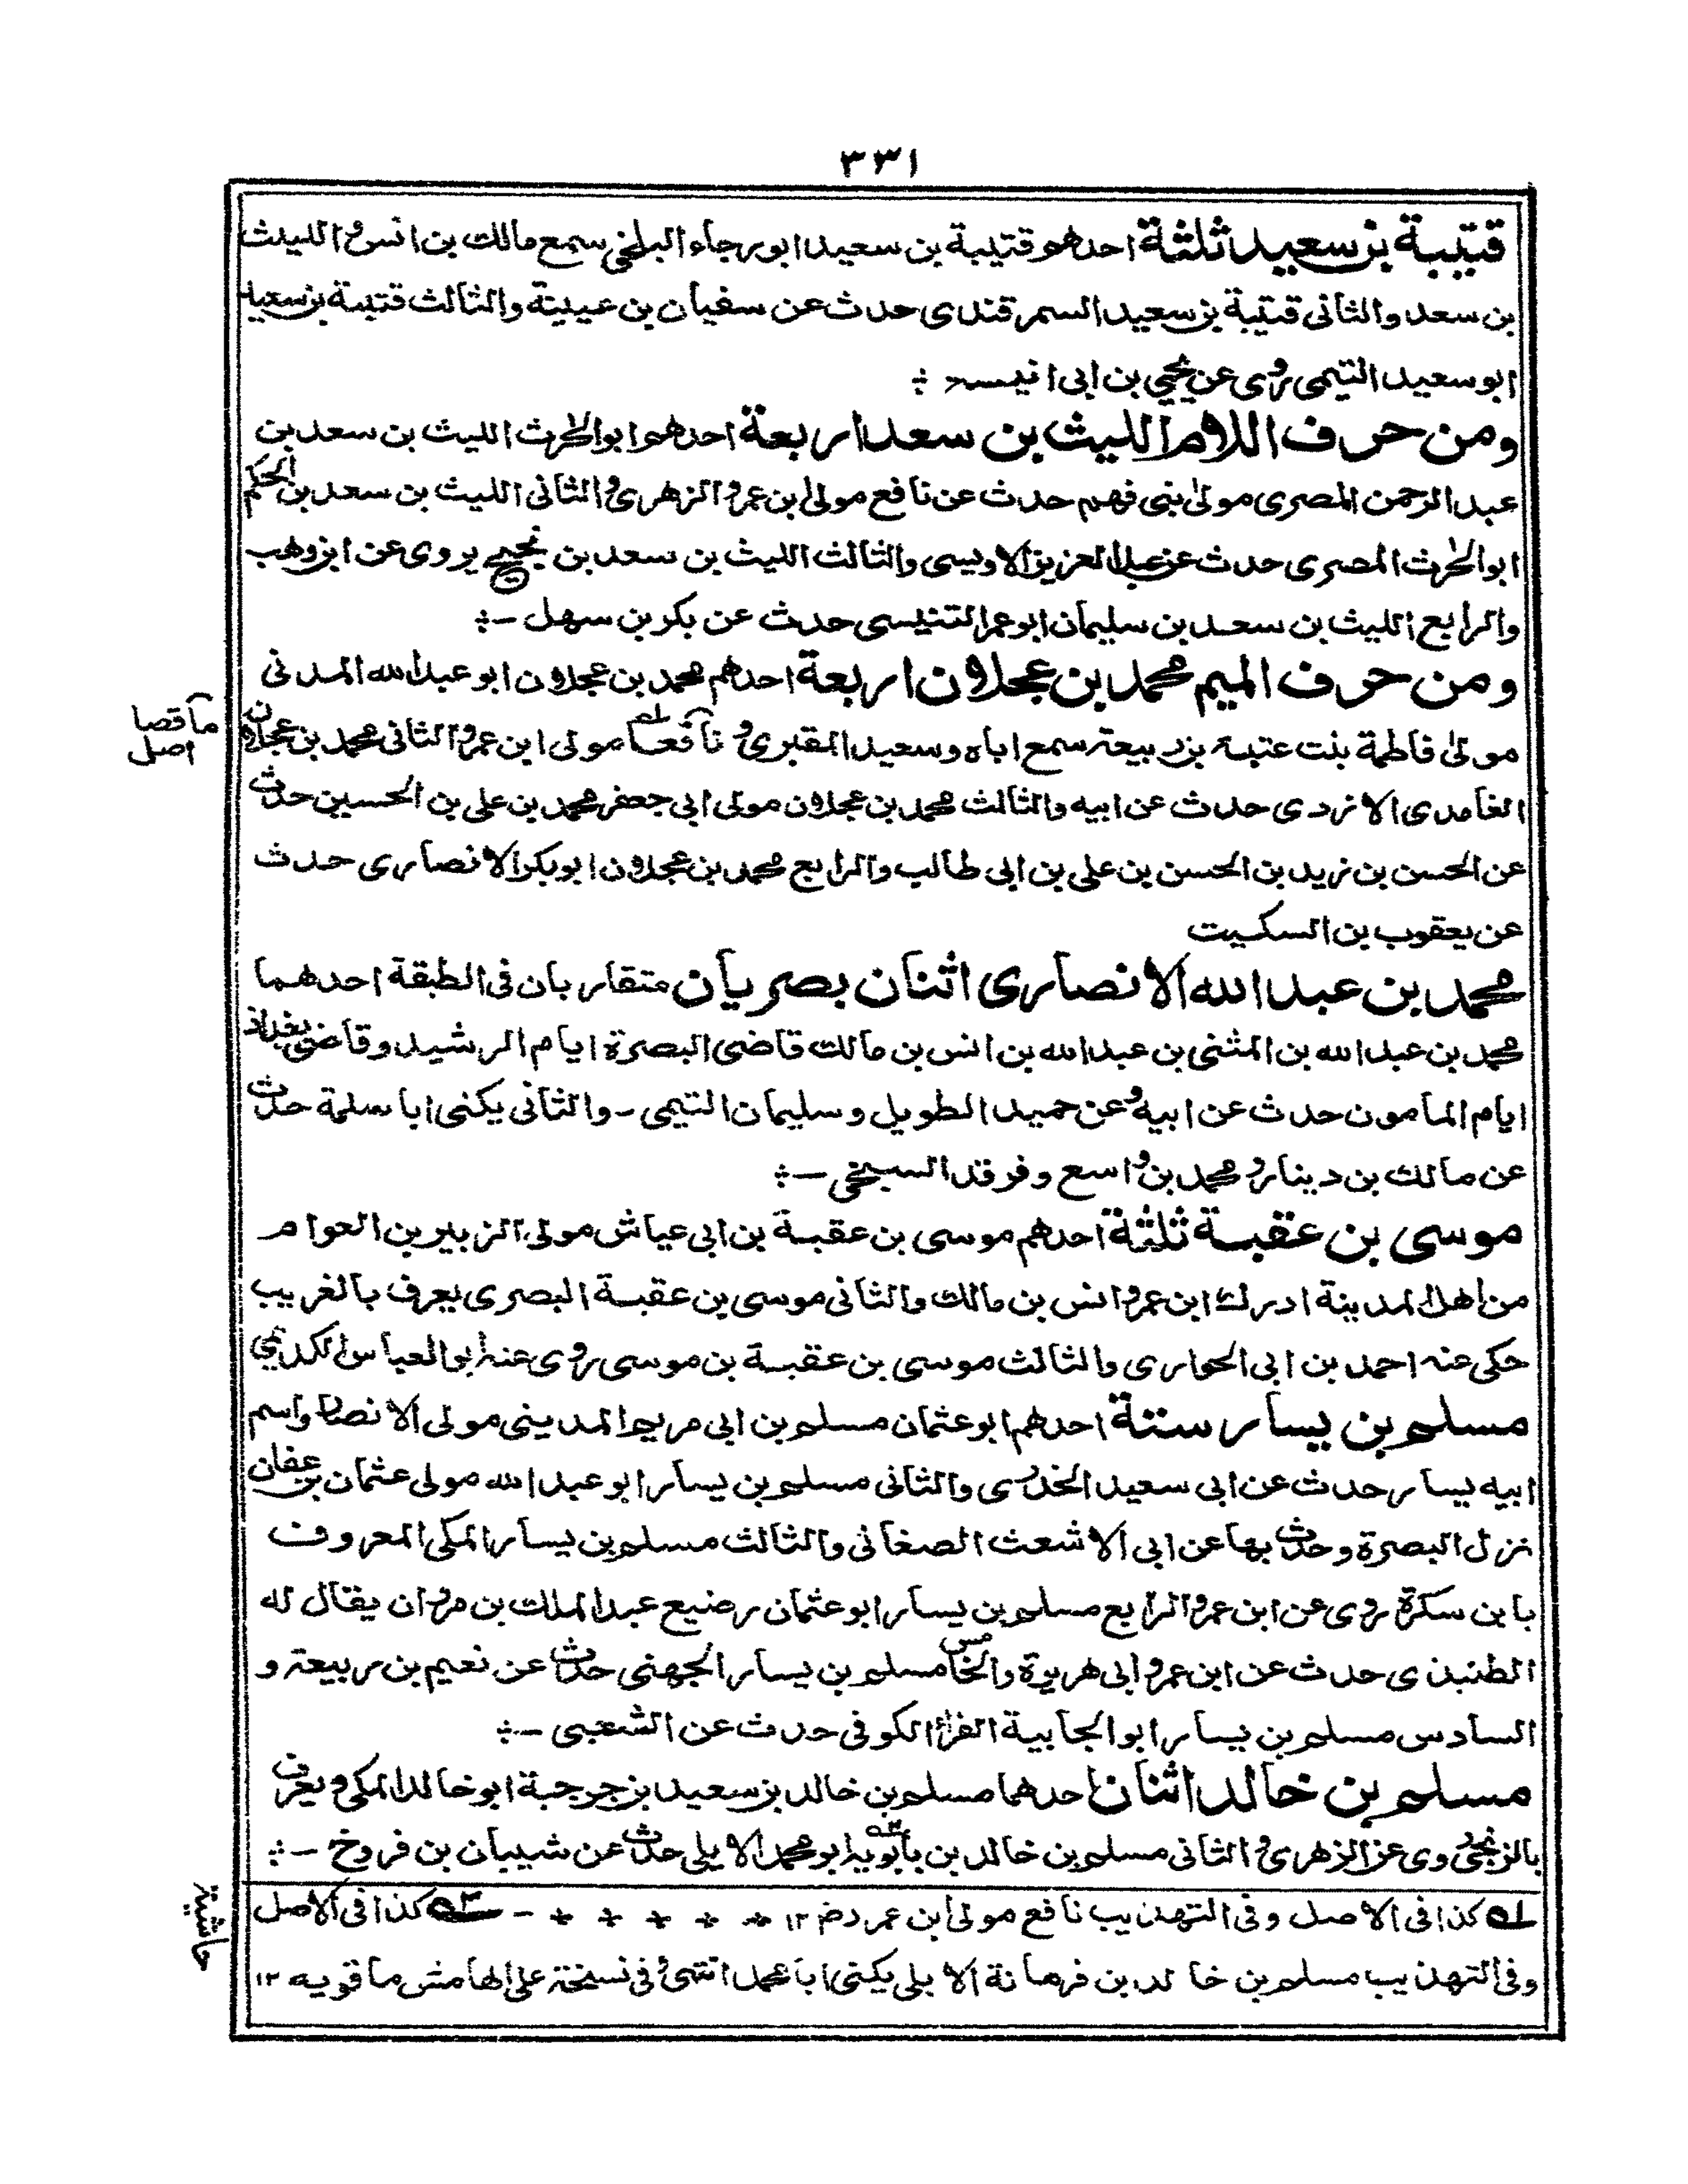 ٣٣١
قتيبة بن سعيد ثلثة احدهم قتيبة بن سعيد ابو رجاء البلخي سمع مالك بن انس و الليث
بن سعد والثاني قتيبة بن سعيد السمرقندى حدث عن سفيان بن عيينة والثالث قتيبة بن سعيد
ابو سعيد التيمى روى عن يحيى بن ابى انيسه ؞
ومن حرف اللام الليث بن سعد اربعة احدهم ابو الحرث الليث بن سعد بن
عبد الرحمن المصرى مولى بنى فهم حدث عن نافع مولى بن عمر و الزهرى و الثانى الليث بن سعد بن الحكم
ابو الحرث المصرى حدث عن عبد العزيز الاويسى والثالث الليث بن سعد بن نجيح يروى عن ابن وهب
والرابع الليث بن سعد بن سليمان ابو عمر التنيسى حدث عن بكر بن سهل - ؞
ومن حرف الميم محمد بن عجلان اربعة احدهم محمد بن عجلان ابو عبد الله المدنى
مولى فاطمة بنت عتبه بن ربيعه سمع اباه وسعيد المقبرى و نافعا له مولى ابن عمر و الثانى محمد بن عجلان
ما قصا
اصل
الغامدى الازدى حدث عن ابيه والثالث محمد بن عجلان مولى ابى جعفر محمد بن على بن الحسين حدث
عن الحسن بن زيد بن الحسن بن على بن ابى طالب والرابع محمد بن عجلان ابو بكر الانصارى حدث
عن يعقوب بن السكيت
محمد بن عبد الله الانصارى اثنان بصريان متقاربان فى الطبقة احدهما
محمد بن عبد الله بن المثنى بن عبد الله بن انس بن مالك قاضى البصرة ايام الرشيد وقاضى بغداد
ايام المامون حدث عن ابيه و عن حميد الطويل و سليمان التيمى - والثانى يكنى ابا سلمة حدث
عن مالك بن دينار و محمد بن واسع و فرقد السبخى - ؞
موسى بن عقبة ثلثة احدهم موسى بن عقبة بن ابى عياش مولى الزبير بن العوام
من اهل المدينة ادرك ابن عمر و انس بن مالك والثانى موسى بن عقبة البصرى يعرف بالغريب
حكى عنه احمد بن ابى الحوارى والثالث موسى بن عقبة بن موسى روى عنه ابو العباس الكديمى
مسلم بن يسار ستة احدهم ابو عثمان مسلم بن ابى مريم المدينى مولى الانصار واسم
ابيه يسار حدث عن ابى سعيد الخدرى والثانى مسلم بن يسار ابو عبد الله مولى عثمان بن عفان
نزل البصرة و حدث بها عن ابى الاشعث الصغانى والثالث مسلم بن يسار المكى المعروف
بابن سكرة روى عن ابن عمر و الرابع مسلم بن يسار ابو عثمان رضيع عبد الملك بن مروان يقال له
الطنبذى حدث عن ابن عمر و ابى هريرة والخامس مسلم بن يسار الجهنى حدث عن نعيم بن ربيعه و
السادس مسلم بن يسار ابو الجابية الفراء الكوفى حدث عن الشعبى - ؞
مسلم بن خالد اثنان احدهما مسلم بن خالد بن سعيد بن جرجبة ابو خالد المكى و يعرف
بالزنجى روى عن الزهرى و الثانى مسلم بن خالد بن بابويه ٢ه ابو محمد الايلى حدث عن شيبان بن فروخ - ؞
له كذا فى الاصل وفى التهذيب نافع مولى ابن عمر رض ١٢ * * * * * - ٢ه كذا فى الاصل
وفى التهذيب مسلم بن خالد بن فرمانة الايلى يكنى ابا محمد انتهى و فى نسخة على الهامش ما قويه ١٢
حاشية